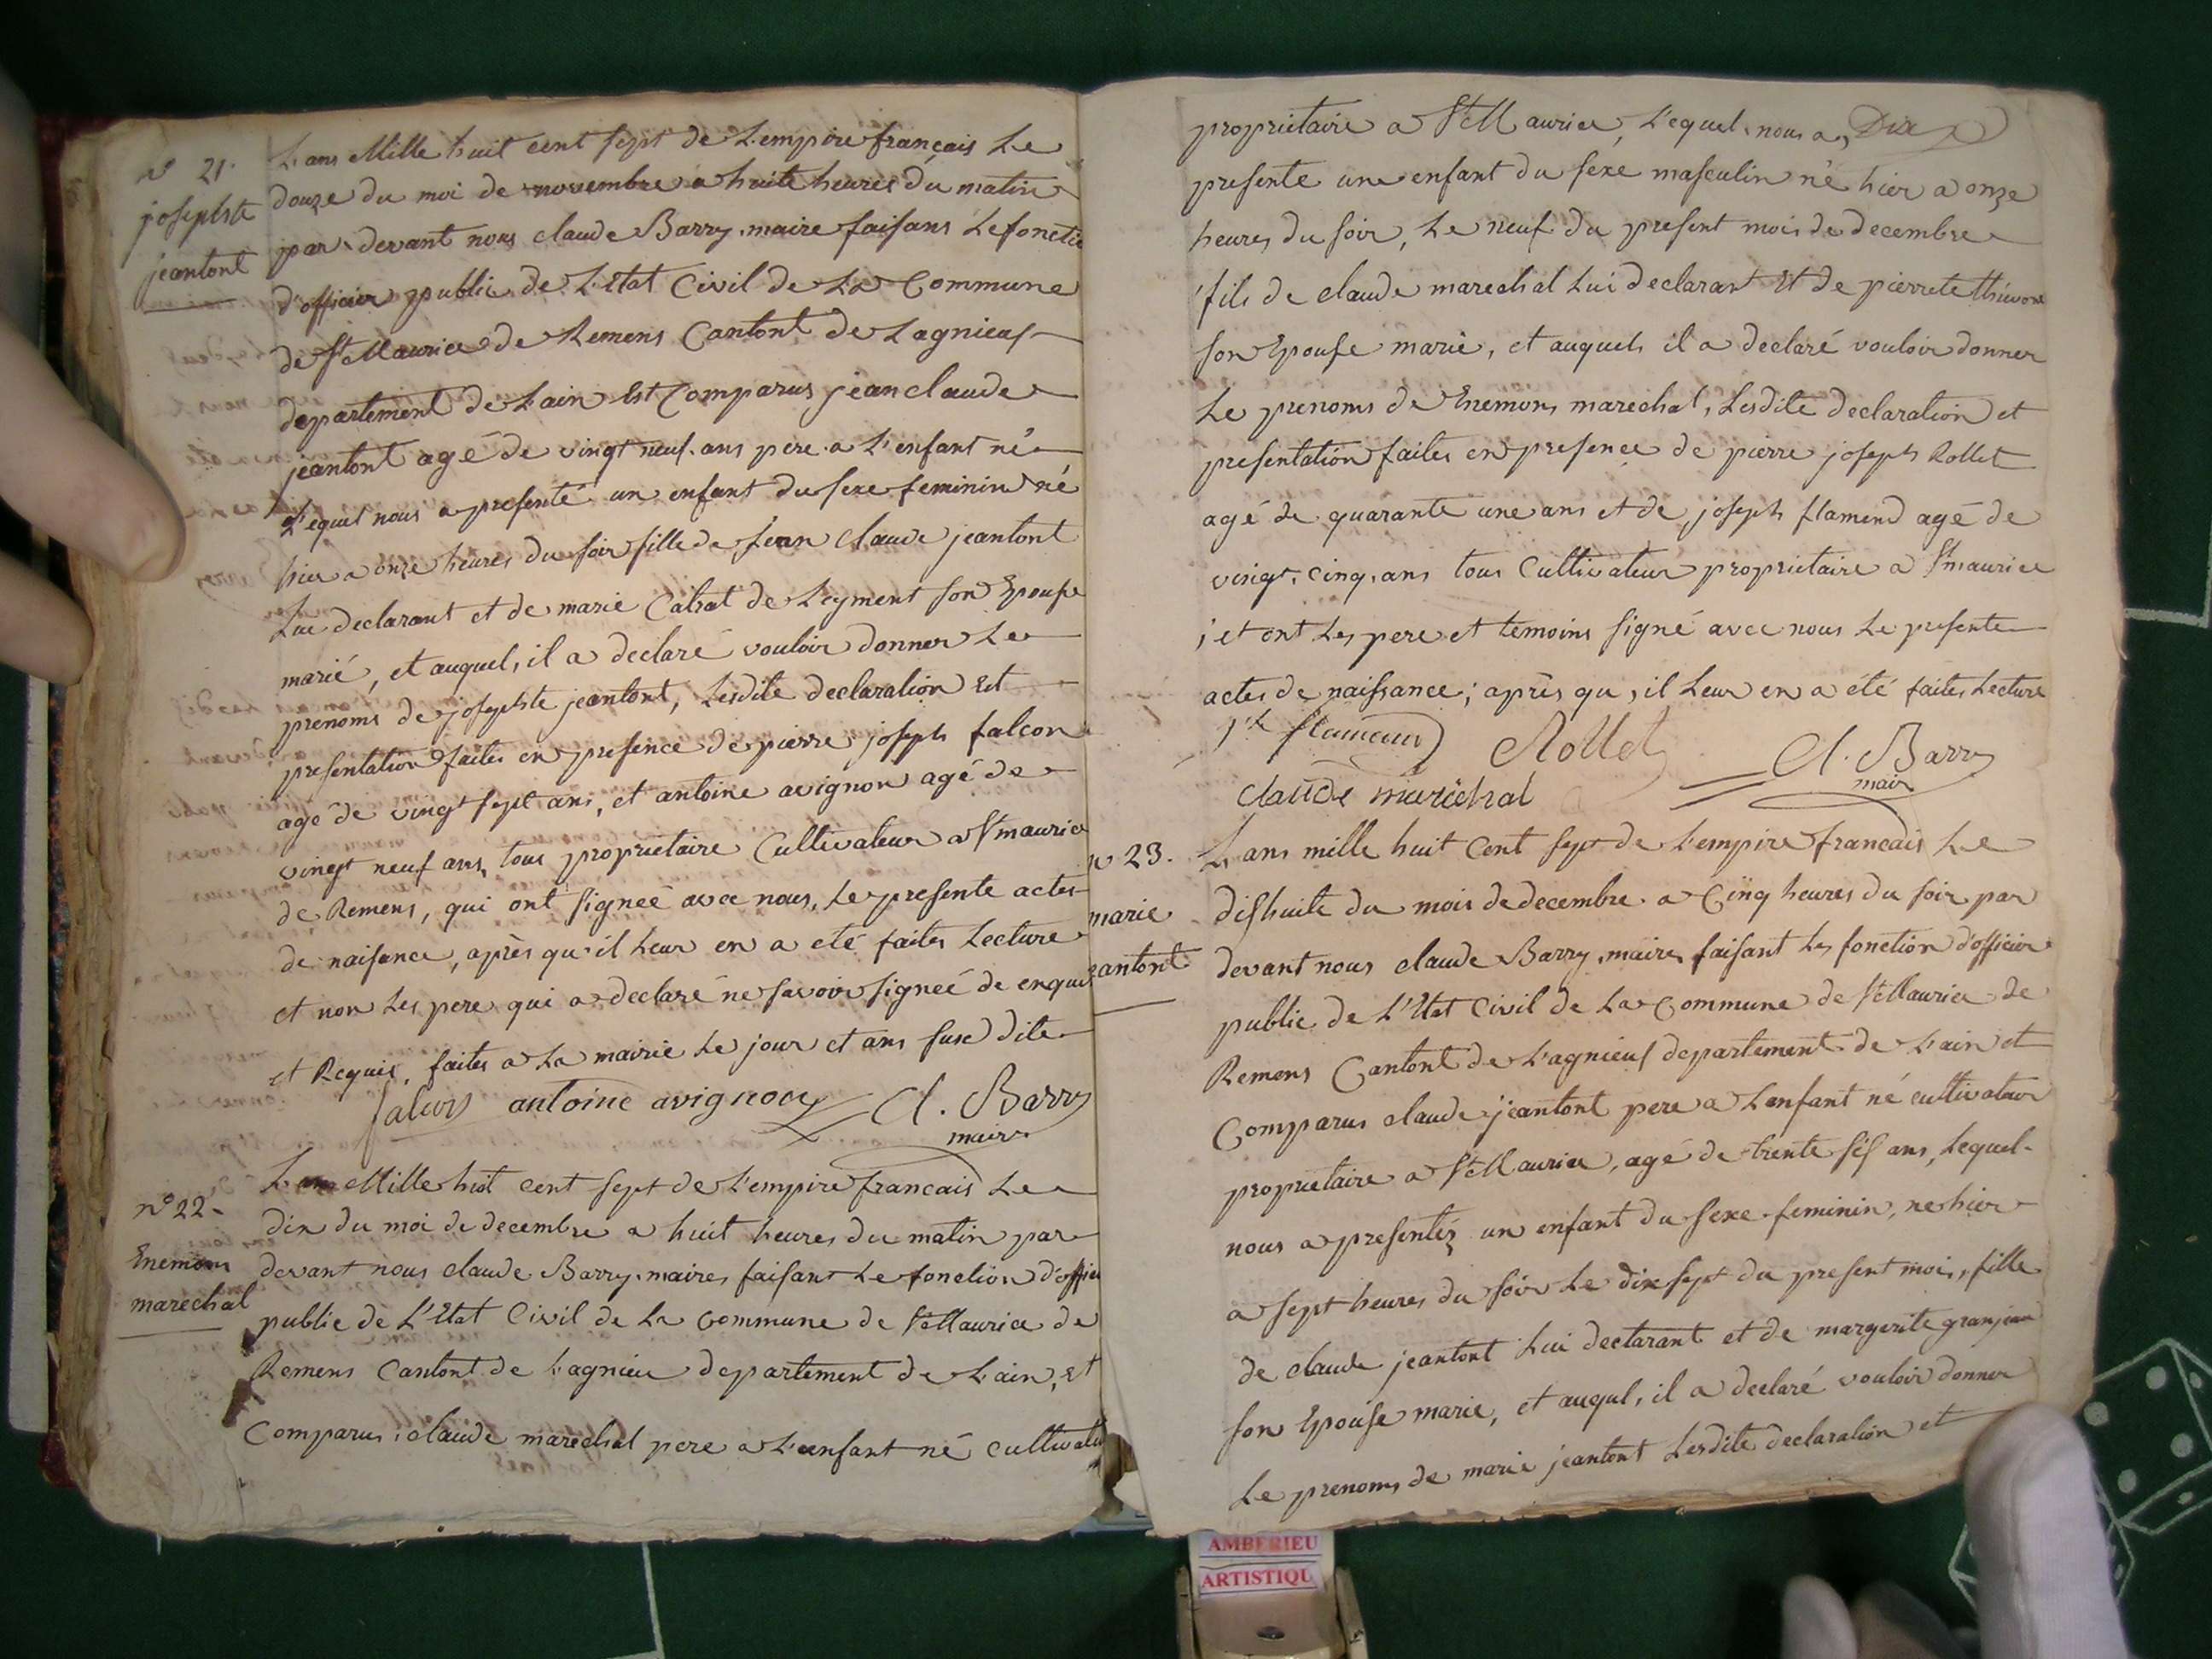 n° 21.
josephte
jeantont
L'ans Mille huit cent sept de L'empire français Le
douze du moi de novembre a huite heures du matin
par devant nous claude Barry maire faisans Le fonctio
d'officier public de L'Etat Civil de La Commune
de St Maurice de Remens Cantont de Lagnieus
departement de Lain Est Comparus jean claude
jeantont agé de vingt neuf ans pere a L'enfant né
L'equel nous a presenté un enfant du sexe feminin né
hier a onze heures du soir fille de jean claude jeantont
Lui declarant et de marie Catrat de Leyment son Epouse
marié, et auquel, il a declaré vouloir donner Le
prenoms de josephte jeantont, Lesdite declaration Est
presentation faites en presence de pierre joseph falcon
agé de vingt sept ans, et antoine avignon agé de
vingt neuf ans, tous proprietaire Cultivateur a St maurice
de Remens, qui ont signeé avec nous, Le presente actes
de naisance, après qu'il Leur en a eté faites Lecture
et non Les pere qui a declaré ne savoir signeé de enquis
et Requis, faites a La mairie Le jour et ans suse dite
falcon antoine avignon Cl. Barry
maire
n° 22.
Enemons
marechal
L'an Mille huit cent sept de L'empire francais Le
dix du moi de decembre a huit heures du matin par
devant nous claude Barry maires faisant Le fonction d'officier
public de L'Etat Civil de La Commune de St Maurice de
Remens Cantont de Lagnieu departement de Lain, Et
Comparus, claude marechal pere a L'enfant né cultivateu
proprietaire a St Maurice, L'equel nous a, Dix
presente une enfant du sexe masculin né hier a onze
heures du soir, Le neuf du present mois de decembre
fils de claude marechal Lui declarant Et de pierrete
son Epouse marié, et auquels il a declaré vouloir donner
Le prenoms de Enemons marechal, Lesdite declaration et
presentation faites en presence de pierre joseph Rollet
agé de quarante une ans et de joseph flamend agé de
vingt, cinq, ans tous Cultivateur proprietaire a St maurice
; et ont Les pere et temoins signé avec nous Le presente
actes de naissance; après qu, il Leur en a été faites Lecture
Jh flamand Rollet Cl. Barry
maire
claude maréchal
n° 23.
marie
jeantont
L'ans mille huit Cent sept de L'empire francais Le
dishuite du mois de decembre a Cinq heures du soir par
devant nous claude Barry, maires faisant Les fonction d'officier
public de L'Etat Civil de La Commune de St Maurice de
Remens Cantont de L'agnieus departement de Lain et
Comparus claude jeantont pere a L'enfant né cultivateur
proprietaire a St Maurice, agé de trente sis ans, Lequel
nous a presentéz un enfant du sexe feminin, ne hier
a sept heures du soir Le dix sept du present mois, fille
de claude jeantont Lui declarant et de margerite granjean
son Epouse marie, et auqul, il a declaré vouloir donner
Le prenoms de marie jeantont Lesdite declaration et
AMBERIEU
ARTISTIQU